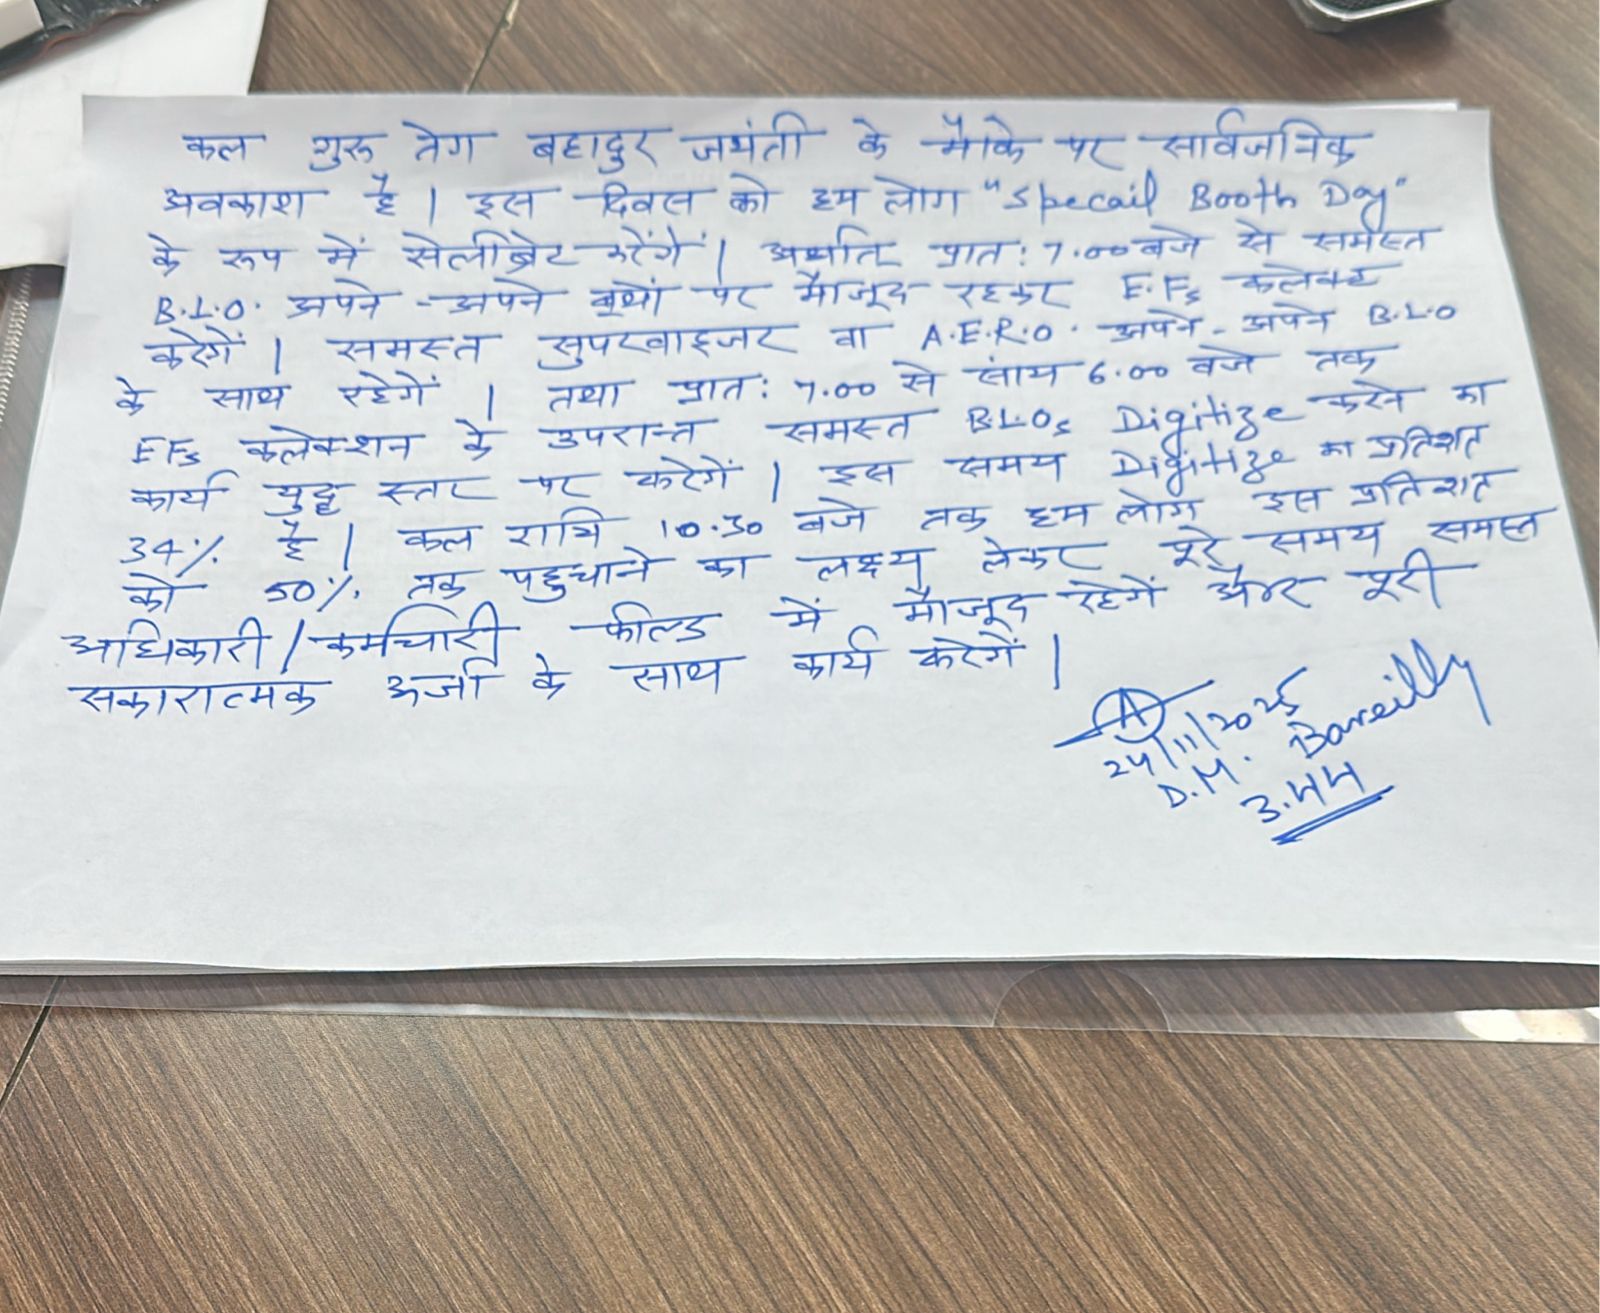 कल गुरु तेग बहादुर जयंती के मौके पर सार्वजनिक
अवकाश है | इस दिवस को हम लोग "Specail Booth Day"
के रूप में सेलीब्रेट करेंगें | अर्थात प्रात: 7.00 बजे से समस्त
B.L.O. अपने-अपने बूथों पर मौजूद रहकर E.Fs कलेक्ट
करेगें | समस्त सुपरवाइजर वा A.E.R.O. अपने-अपने B.L.O
के साथ रहेगें | तथा प्रात: 7.00 से सांय 6.00 बजे तक
EFs कलेक्शन के उपरान्त समस्त B.L.Os Digitize करने का
कार्य युद्ध स्तर पर करेगें | इस समय Digitize का प्रतिशत
34% है | कल रात्रि 10.30 बजे तक हम लोग इस प्रतिशत
को 50% तक पहुचाने का लक्ष्य लेकर पूरे समय समस्त
अधिकारी/कर्मचारी फील्ड में मौजूद रहेगें और पूरी
सकारात्मक ऊर्जा के साथ कार्य करेगें |
24/11/2025
D.M. Bareilly